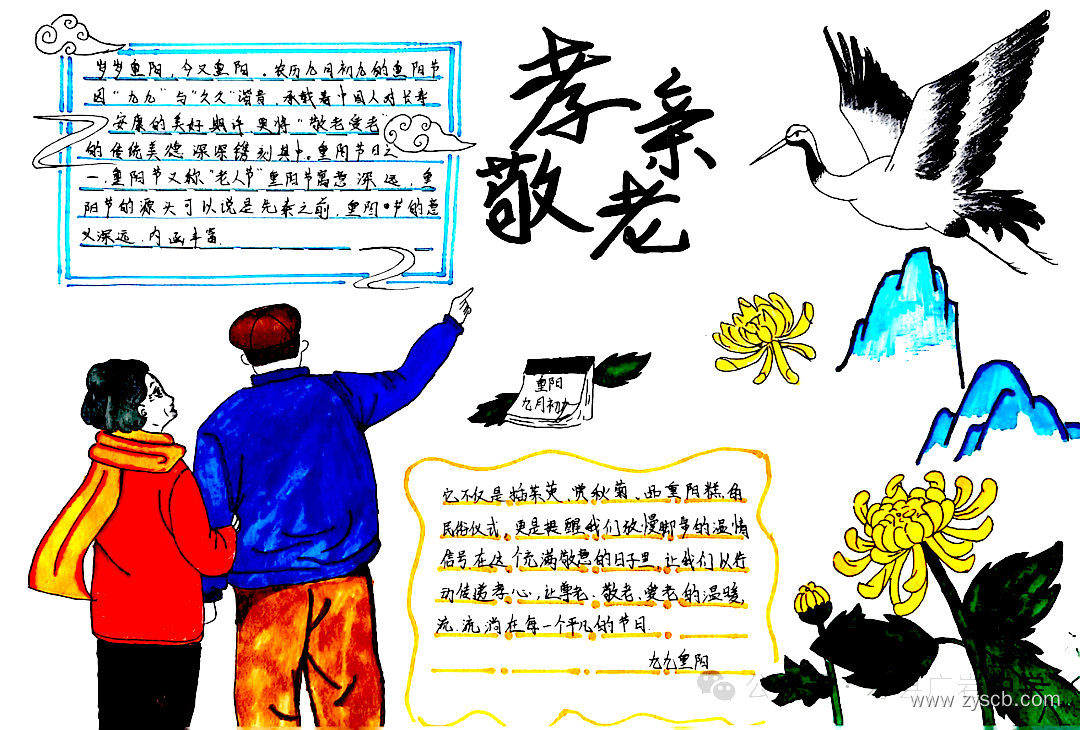 岁岁重阳，今又重阳。农历九月初九的重阳节
因“九九”与“久久”谐音，承载着中国人对长寿
安康的美好期许，更将“敬老爱老”
的传统美德深深镌刻其中。重阳节日之
一.重阳节又称“老人节”重阳节寓意深远，重
阳节的源头可以说是先秦之前，重阳节的意
义深远.内涵丰富.
孝亲
敬老
重阳
九月初九
它不仅是插茱萸、赏秋菊、品重阳糕的
民俗仪式，更是提醒我们放慢脚步的温情
信号在这个充满敬意的日子里，让我们以行
动传递孝心，让尊老、敬老、爱老的温暖，
流.流淌在每一个平凡的节日.
九九重阳
www.zyscb.com